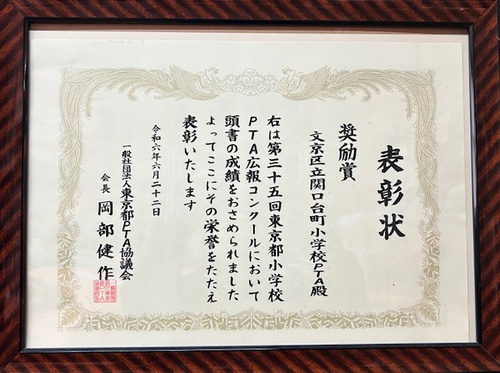 表彰状
奨励賞
文京区立関口台町小学校PTA殿
右は第三十五回東京都小学校
PTA広報コンクールにおいて
頭書の成績をおさめられました
よってここにその栄誉をたたえ
表彰いたします
令和六年六月二十二日
一般社団法人東京都PTA協議会
会長 岡部健作